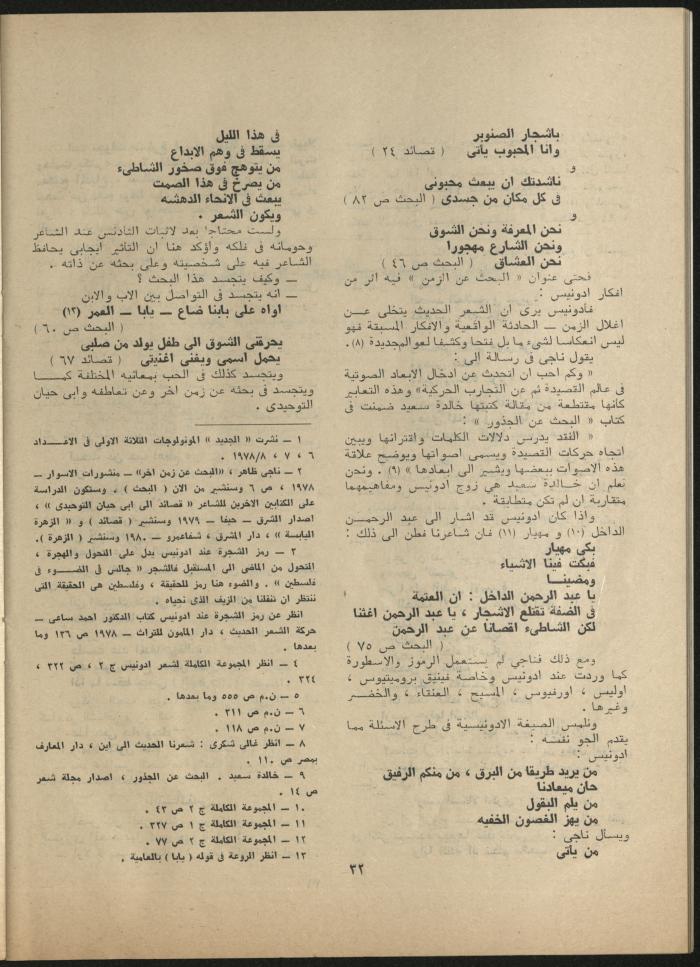 باشجار الصنوبر
وانا المحبوب ياتى ( قصائد ٢٤ )
و
ناشدتك ان يبعث محبوبى
فى كل مكان من جسدى ( البحث ص ٨٢ )
و
نحن المعرفة ونحن الشوق
ونحن الشارع مهجورا
نحن العشاق ( البحث ص ٤٦ )
فحتى عنوان « البحث عن الزمن » فيه اثر من
افكار ادونيس :
فأدونيس يرى ان الشعر الحديث يتخلى عــن
اغلال الزمن ــ الحادثة الواقعية والافكار المسبقة فهو
ليس انعكاسا لشىء ما بل فتحا وكشفا لعوالم جديدة (٨).
يقول ناجى فى رسالة الى :
« وكم احب ان اتحدث عن ادخال الابعاد الصوتية
فى عالم القصيدة ثم عن التجارب الحركية» وهذه التعابير
كانها مقتطعة من مقالة كتبتها خالدة سعيد ضمنت فى
كتاب « البحث عن الجذور » :
« النقد يدرس دلالات الكلمات واقترانها ويبين
اتجاه حركات القصيدة ويسمى اصواتها ويوضح علاقة
هذه الاصوات ببعضها ويشير الى ابعادها » (٩) . ونحن
نعلم ان خــالدة سعيد هى زوج ادونيس ومفاهيمهما
متقاربة ان لم تكن متطابقة .
واذا كان ادونيس قد اشار الى عبد الرحمــن
الداخل (١٠) و مهيار (١١) فان شاعرنا فطن الى ذلك :
بكى مهيار
فبكت فينا الاشياء
ومضينــا
يا عبد الرحمن الداخل : ان العتمة
فى الضفة تقتلع الاشجار ، يا عبد الرحمن اغثنا
لكن الشاطىء اقصانا عن عبد الرحمن
( البحث ص ٧٥ )
ومع ذلك فناجى لم يستعمل الرموز والاسطورة
كما وردت عند ادونيس وخاصة فينيق بروميثيوس ،
اوليس ، اورفيوس ، المسيح ، العنقاء ، والخضــر
وغيرها .
ونلمس الصيغة الادونيسية فى طرح الاسئلة مما
يقدم الجو نفسه :
ادونيس :
من يريد طريقا من البرق ، من منكم الرفيق
حان ميعادنا
من يلم البقول
من يهز الغصون الخفيه
ويسأل ناجى :
من ياتى
فى هذا الليل
يسقط فى وهم الابداع
من يتوهج فوق صخور الشاطىء
من يصرخ فى هذا الصمت
يبعث فى الانحاء الدهشه
ويكون الشعر .
ولست محتاجا بعد لاثبات التأدنس عند الشاعر
وحومانه فى فلكه وأؤكد هنا ان التأثير ايجابى يحافظ
الشاعر فيه على شخصيته وعلى بحثه عن ذاته .
ــ وكيف يتجسد هذا البحث ؟
ــ انه يتجسد فى التواصل بين الاب والابن
اواه على بابنا ضاع ــ يابا ــ العمر (١٣)
( البحث ص ٦٠ )
يحرقنى الشوق الى طفل يولد من صلبى
يحمل اسمى ويغنى اغنيتى ( قصائد ٦٧ )
ويتجسد كذلك فى الحب بمعانيه المختلفة كمــا
ويتجسد فى بحثه عن زمن اخر وعن تعاطفه وابى حيان
التوحيدى .
١ ــ نشرت « الجديد » المونولوجات الثلاثة الاولى فى الاعــداد
٦ ، ٧ ، ١٩٧٨/٨ .
٢ ــ ناجى ظاهر ، «البحث عن زمن اخر» ــ منشورات الاسوار ــ
١٩٧٨ ، ص ٦ وسنشير من الان ( البحث ) . وستكون الدراسة
على الكتابين الاخرين للشاعر « قصائد الى ابى حيان التوحيدى » ،
اصدار الشرق ــ حيفا ــ ١٩٧٩ وسنشير ( قصائد ) و « الزهرة
اليابسة » ، دار المشرق ، شفاعمرو ــ ١٩٨٠ وسنشير ( الزهرة ) .
٣ ــ رمز الشجرة عند ادونيس يدل على التحول والهجرة ،
التحول من الماضى الى المستقبل فالشجر « جالس فى الضــوء فى
فلسطين » . والضوء هنا رمز للحقيقة ، وفلسطين هى الحقيقة التى
ننتظر ان تنقلنا من الزيف الذى نحياه .
انظر عن رمز الشجرة عند ادونيس كتاب الدكتور احمد ساعى ــ
حركة الشعر الحديث ، دار المأمون للتراث ــ ١٩٧٨ ص ١٣٦ وما
بعدها .
٤ ــ انظر المجموعة الكاملة لشعر ادونيس ج ٢ ، ص ٣٢٢ ،
٣٢٤ .
٥ ــ ن.م ص ٥٥٥ وما بعدها .
٦ ــ ن.م ص ٣١١ .
٧ ــ ن.م ص ١١٨ .
٨ ــ انظر غالى شكرى : شعرنا الحديث الى اين ، دار المعارف
بمصر ص ١١٠ .
٩ ــ خالدة سعيد . البحث عن الجذور ، اصدار مجلة شعر
ص ١٤ .
١٠ ــ المجموعة الكاملة ج ٢ ص ٤٣ .
١١ ــ المجموعة الكاملة ج ١ ص ٣٢٧ .
١٢ ــ المجموعة الكاملة ج ٢ ص ٧٧ .
١٣ ــ انظر الروعة فى قوله ( يابا ) بالعامية .
٣٢